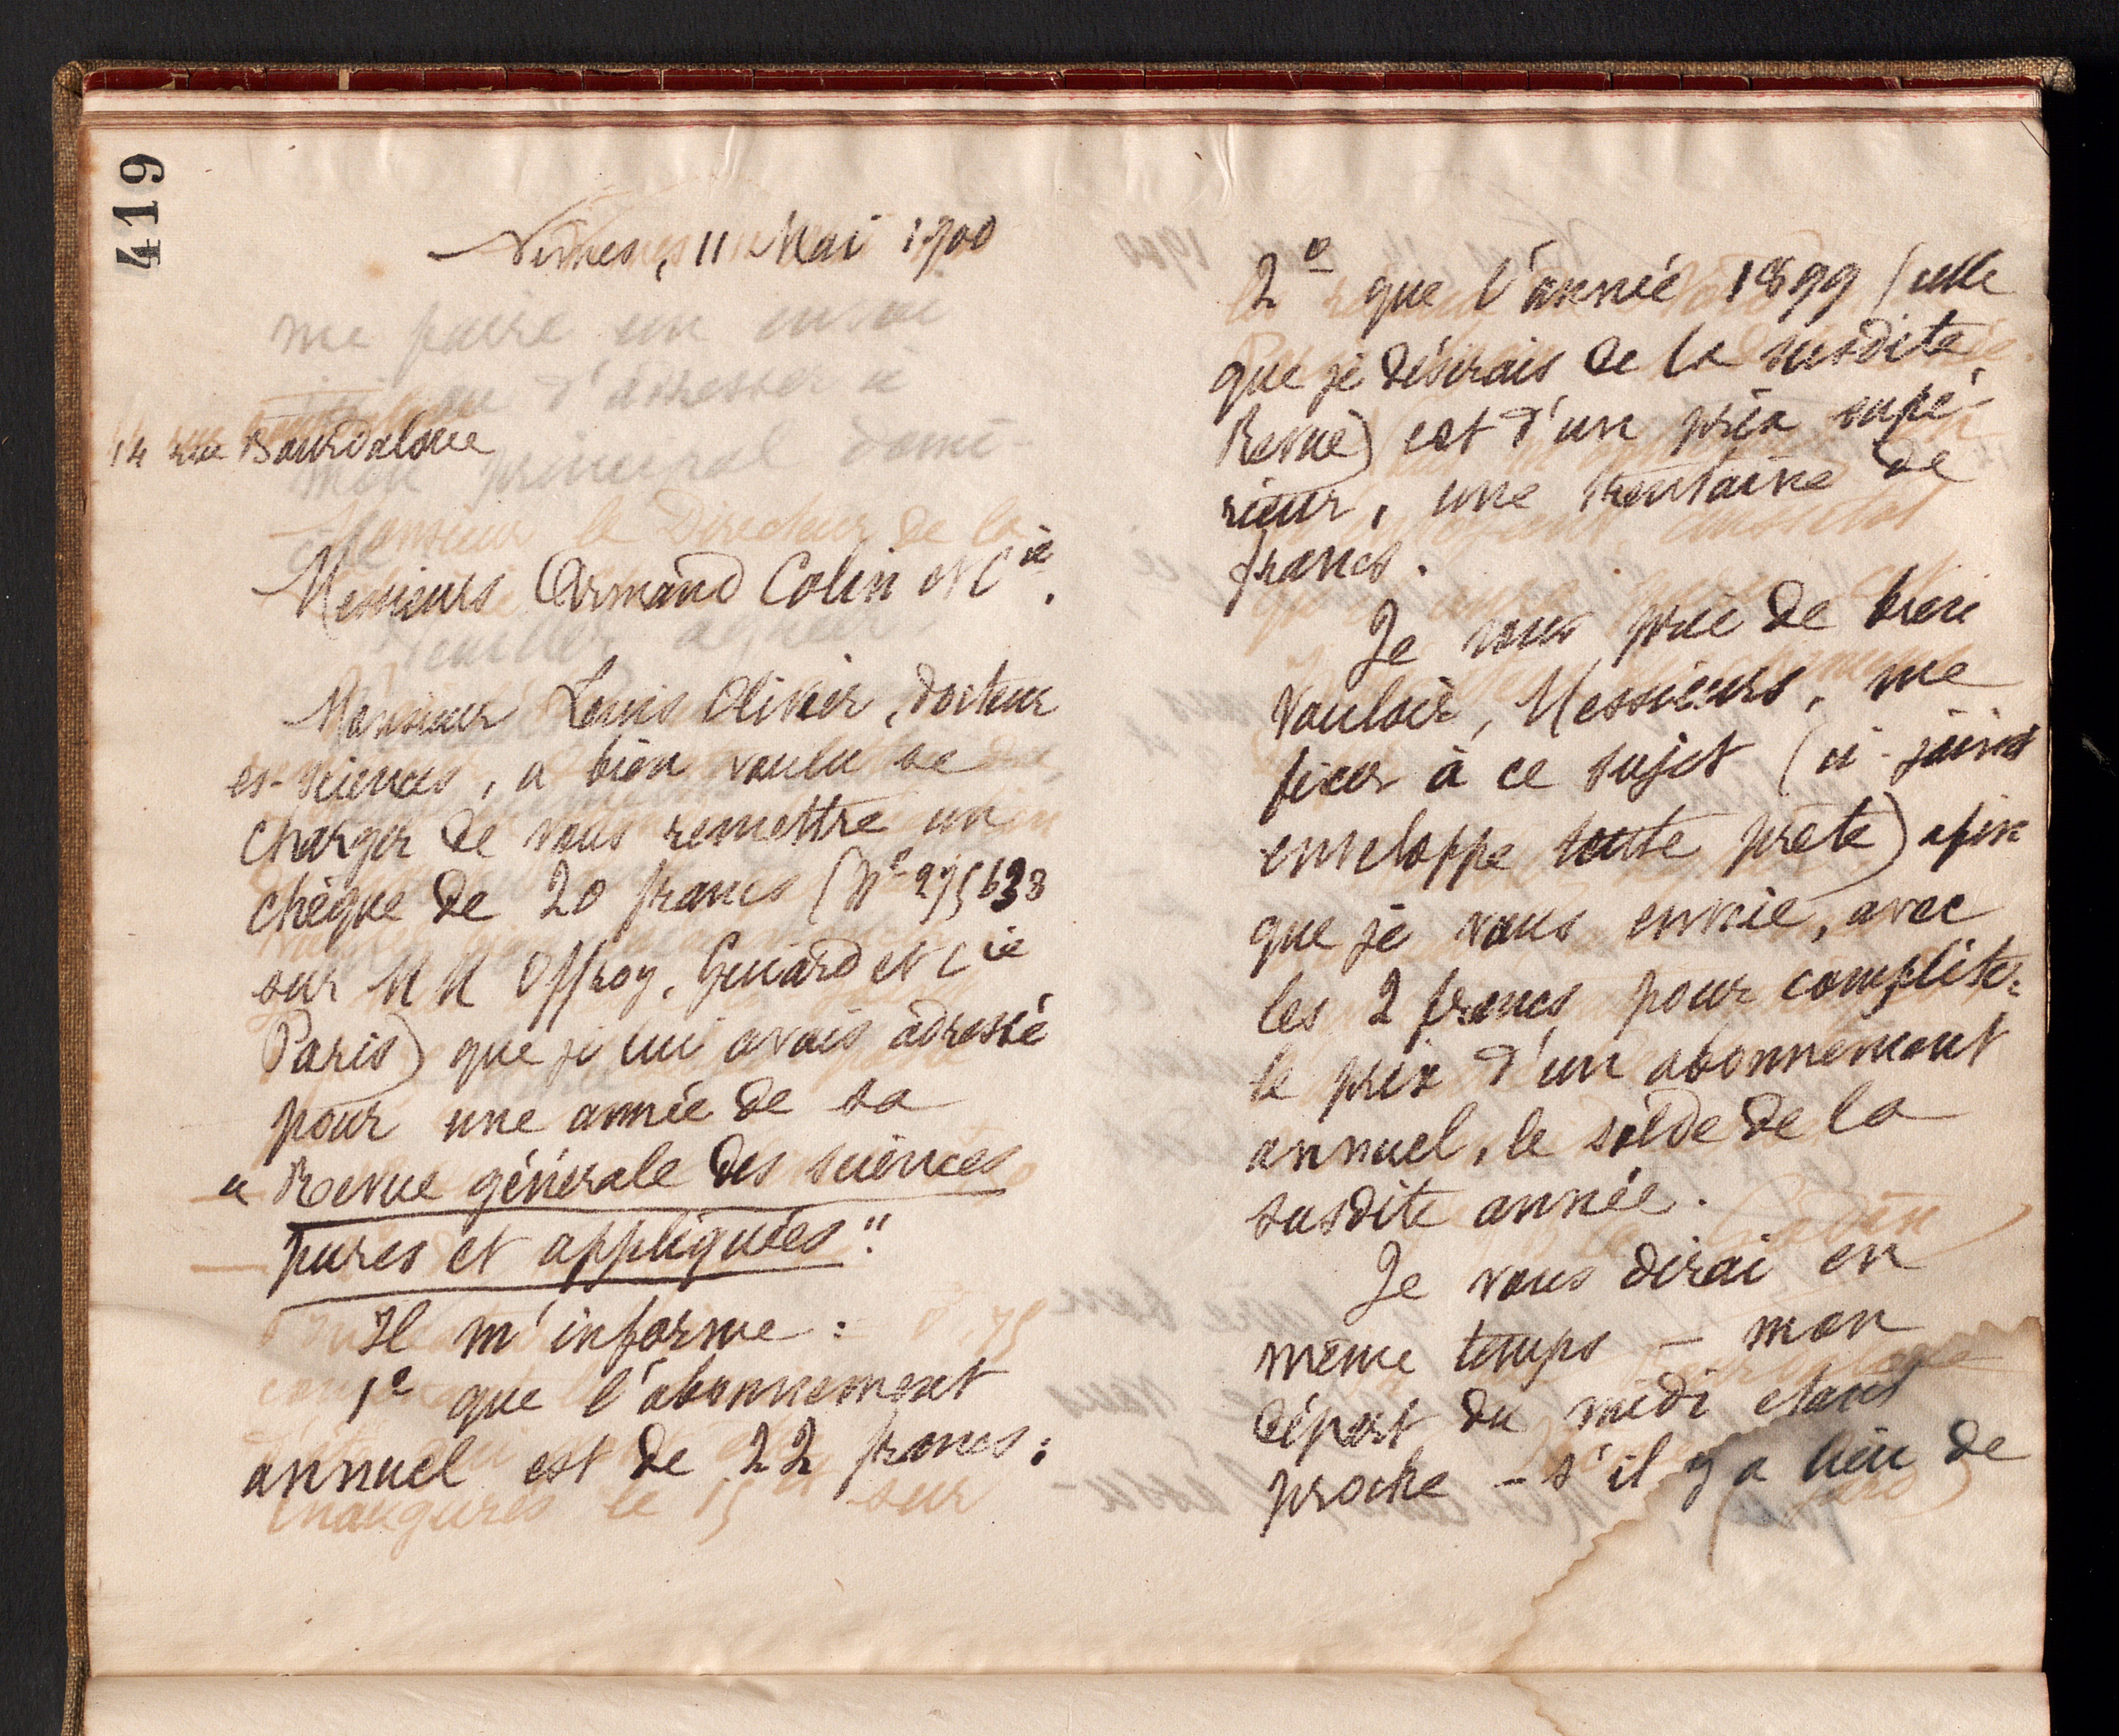 419
Nîmes, 11 Mai 1900
14 rue Bourdaloue
Messieurs Armand Colin et Cie.
Monsieur Louis Olivier, docteur
es-sciences, a bien voulu se
charger de vous remettre un
chèque de 20 francs (No 275638
sur MM Offroy, Guiard et Cie
Paris) que je lui avais adressé
pour une année de sa
« Revue générale des sciences
pures et appliquées".
Il m'informe :
1o que l'abonnement
annuel est de 22 francs ;
2o que l'année 1899 (celle
que je désirais de la susdite
Revue) est d'un prix supé-
rieur, une trentaine de
francs.
Je vous prie de bien
vouloir, Messieurs, me
fixer à ce sujet (ci-joint
enveloppe toute prête) afin
que je vous envoie, avec
les 2 francs pour compléter
le prix d'un abonnement
annuel, le solde de la
susdite année.
Je vous dirai en
même temps - mon
départ du midi étant
proche - s'il y a lieu de